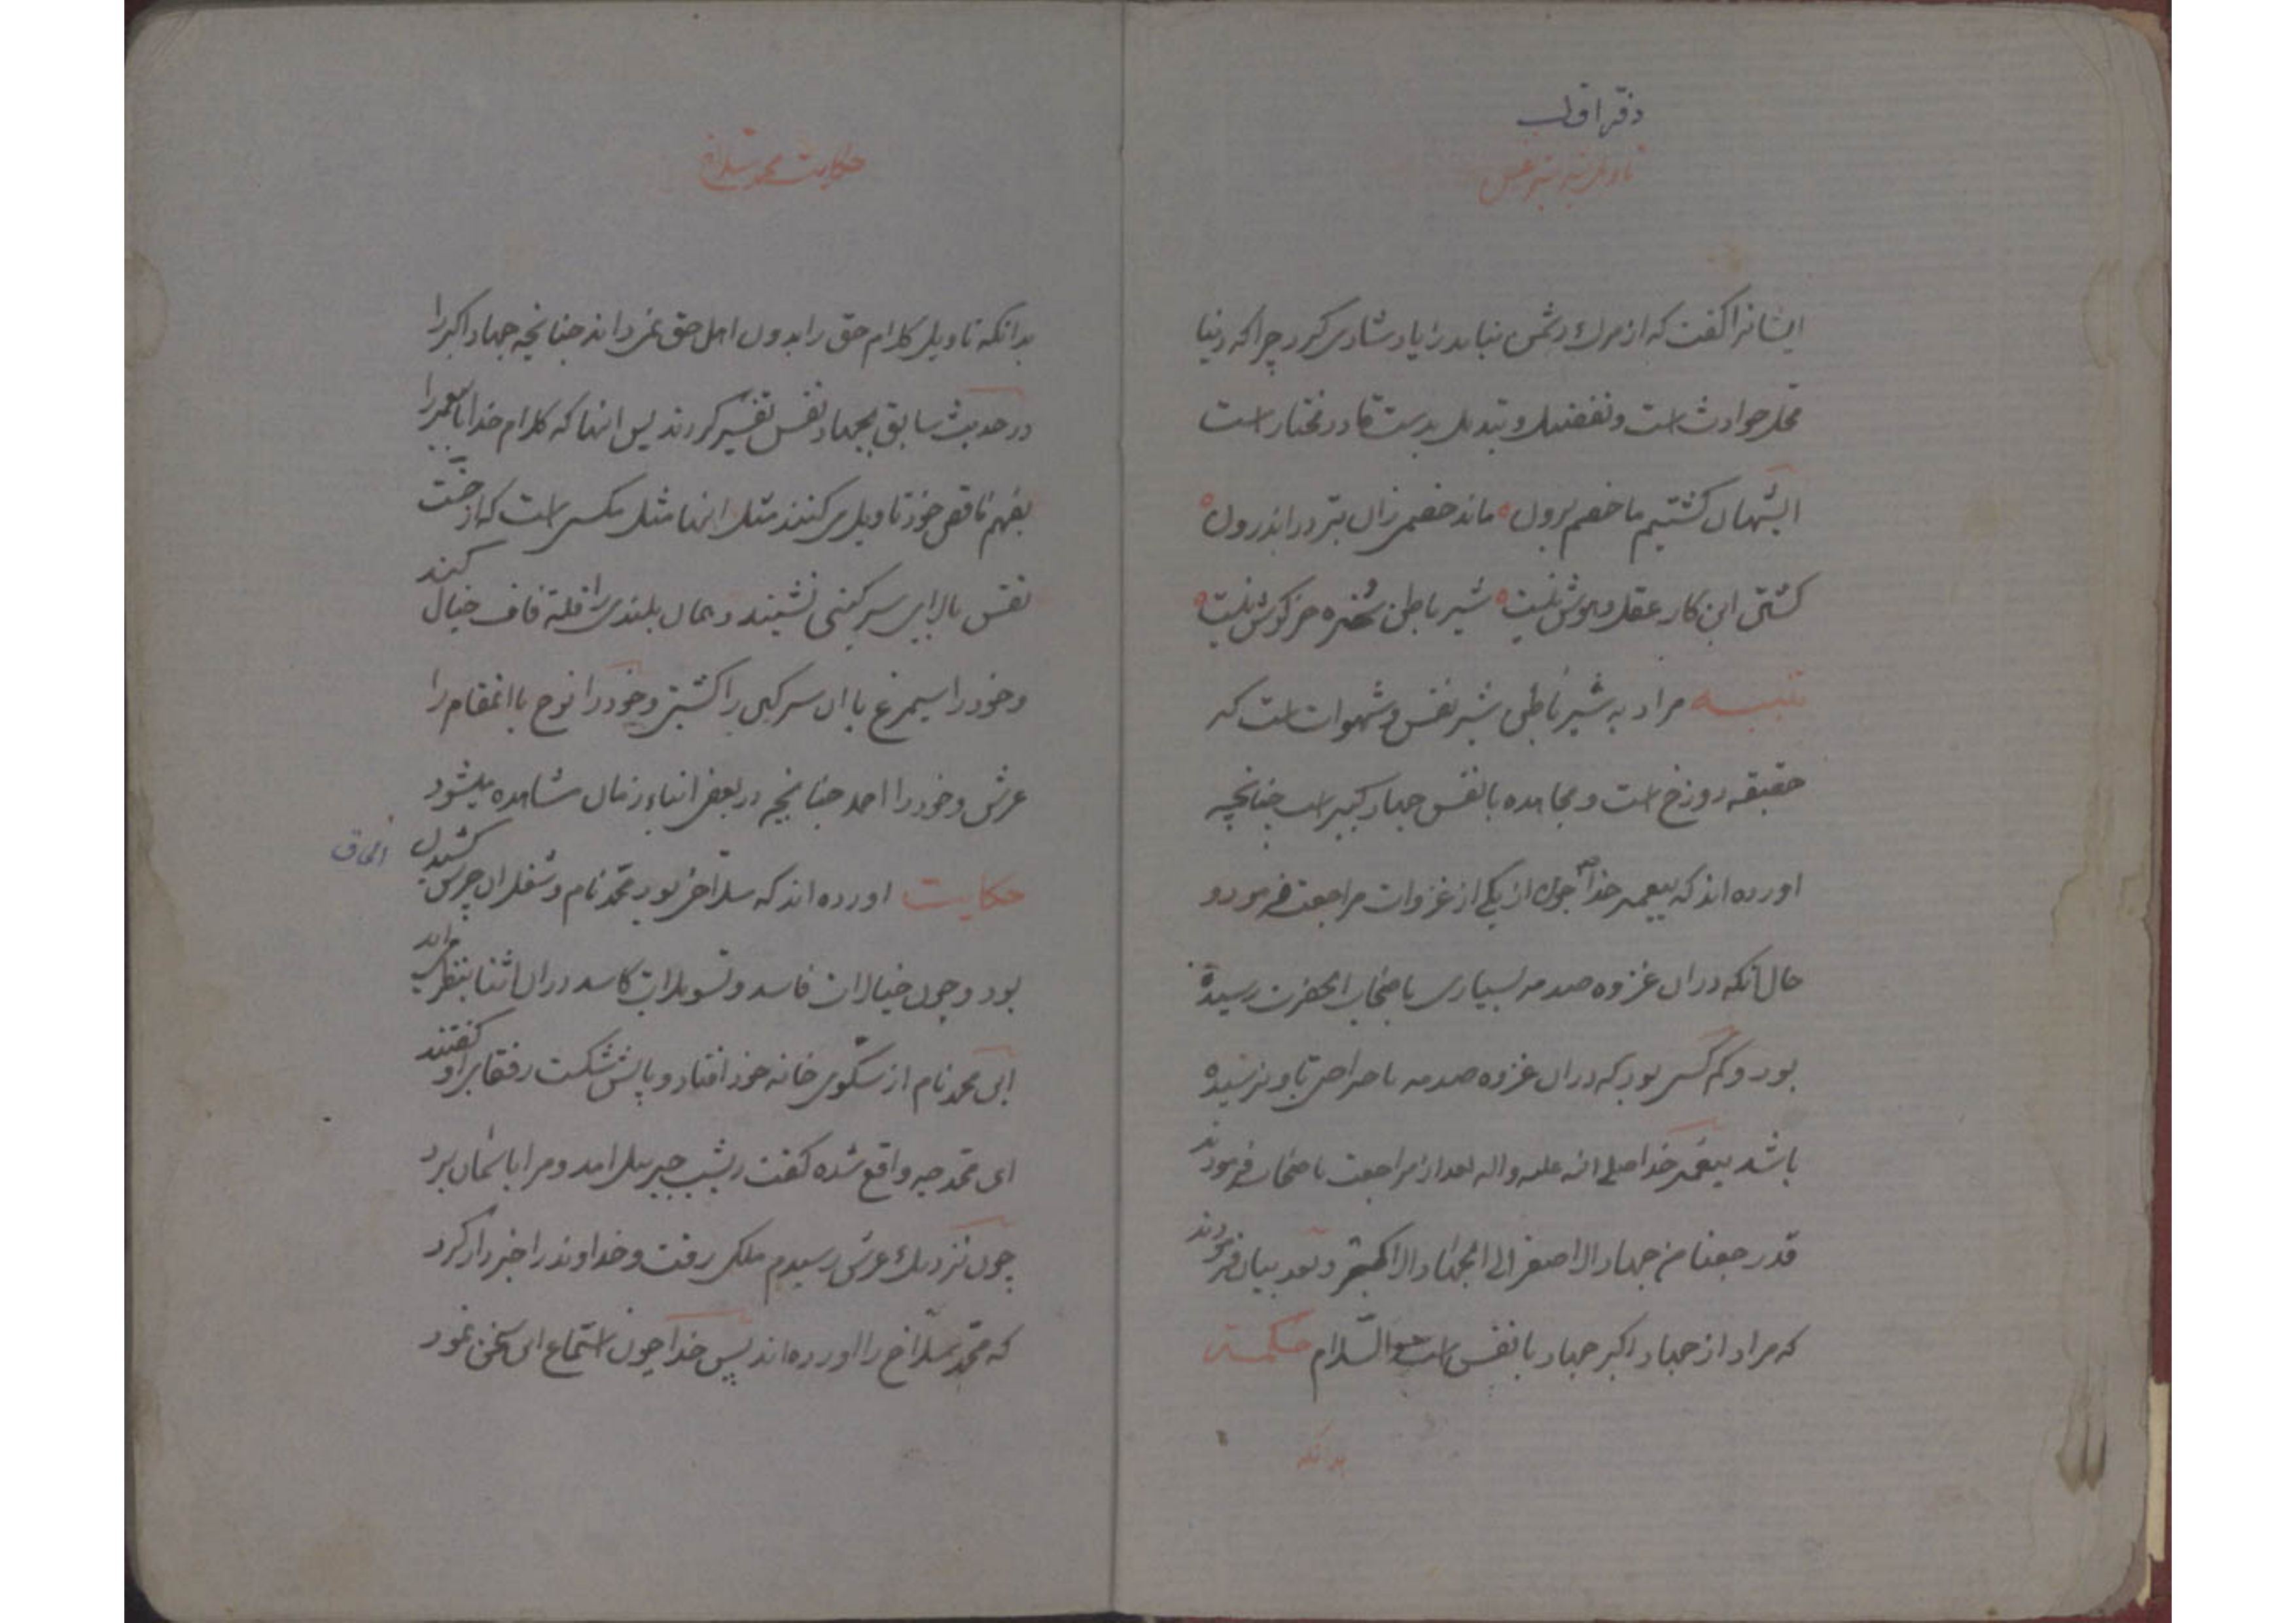 دفتر اول
ایشانرا کفت که از مرك دشمن نباید زیاد شادی کرد چرا که دنیا
محل حوادث است و تغییر و تبدیل بدست قادر مختار است
ای شهان کشتیم ما خصم برون ماند خصمی زان بتر در اندرون
کشتن این کار عقل و هوش نیست شیر باطن سخره خرکوش نیست
تنبیه مراد به شیر باطن شیر نفس و شهوات است که
حقیقه دوزخ است و مجاهده با نفس جهاد کبیر است چنانچه
اورده اند که پیغمبر خدا چون از یکی از غزوات مراجعت فرمود و
حال آنکه دران غزوه صدمه بسیاری باصحاب آنحضرت رسیده
بود و کم کسی بود که دران غزوه صدمه یا جراحتی باو نرسیده
باشد پیغمبر خدا صلی الله علیه واله بعد از مراجعت باصحاب فرمودند
قد رجعنا من جهاد الاصغر الی الجهاد الاکبر و بعد بیان فرمودند
که مراد از جهاد اکبر جهاد با نفس است والسلام حکمت
بدانکه
حکایت محمد سلاخ
بدانکه تاویل کلام حق را بدون اهل حق نمی داند چنانچه جهاد اکبر را
در حدیث سابق بجهاد نفس تفسیر کردند پس انها که کلام خدا یا پیغمبر را
بفهم ناقص خود تاویل می کنند مثل انها مثل مکسی است که از خبث
نفس بالای سرکینی نشیند و همان بلندی را قله قاف خیال کند
و خود را سیمرغ یا ان سرکین را کشتی و خود را نوح یا انمقام را
عرش و خود را احمد چنانچه در بعض ابناء زمان مشاهده میشود
الحاق
حکایت اورده اند که سلاخی بود محمد نام و شغل ان چرس کشیدن
بود و چون خیالات فاسد و تسویلات کاسد دران اثنا بنظر می اید
این محمد نام از سکوی خانه خود افتاد و پایش شکست رفقای او کفتند
ای محمد چه واقع شده کفت دیشب جبرییل امد و مرا باسمان برد
چون نزدیك عرش رسیدم ملکی رفت و خداوند را خبردار کرد
که محمد سلاخ را اورده اند پس خدا چون استماع این سخن نمود